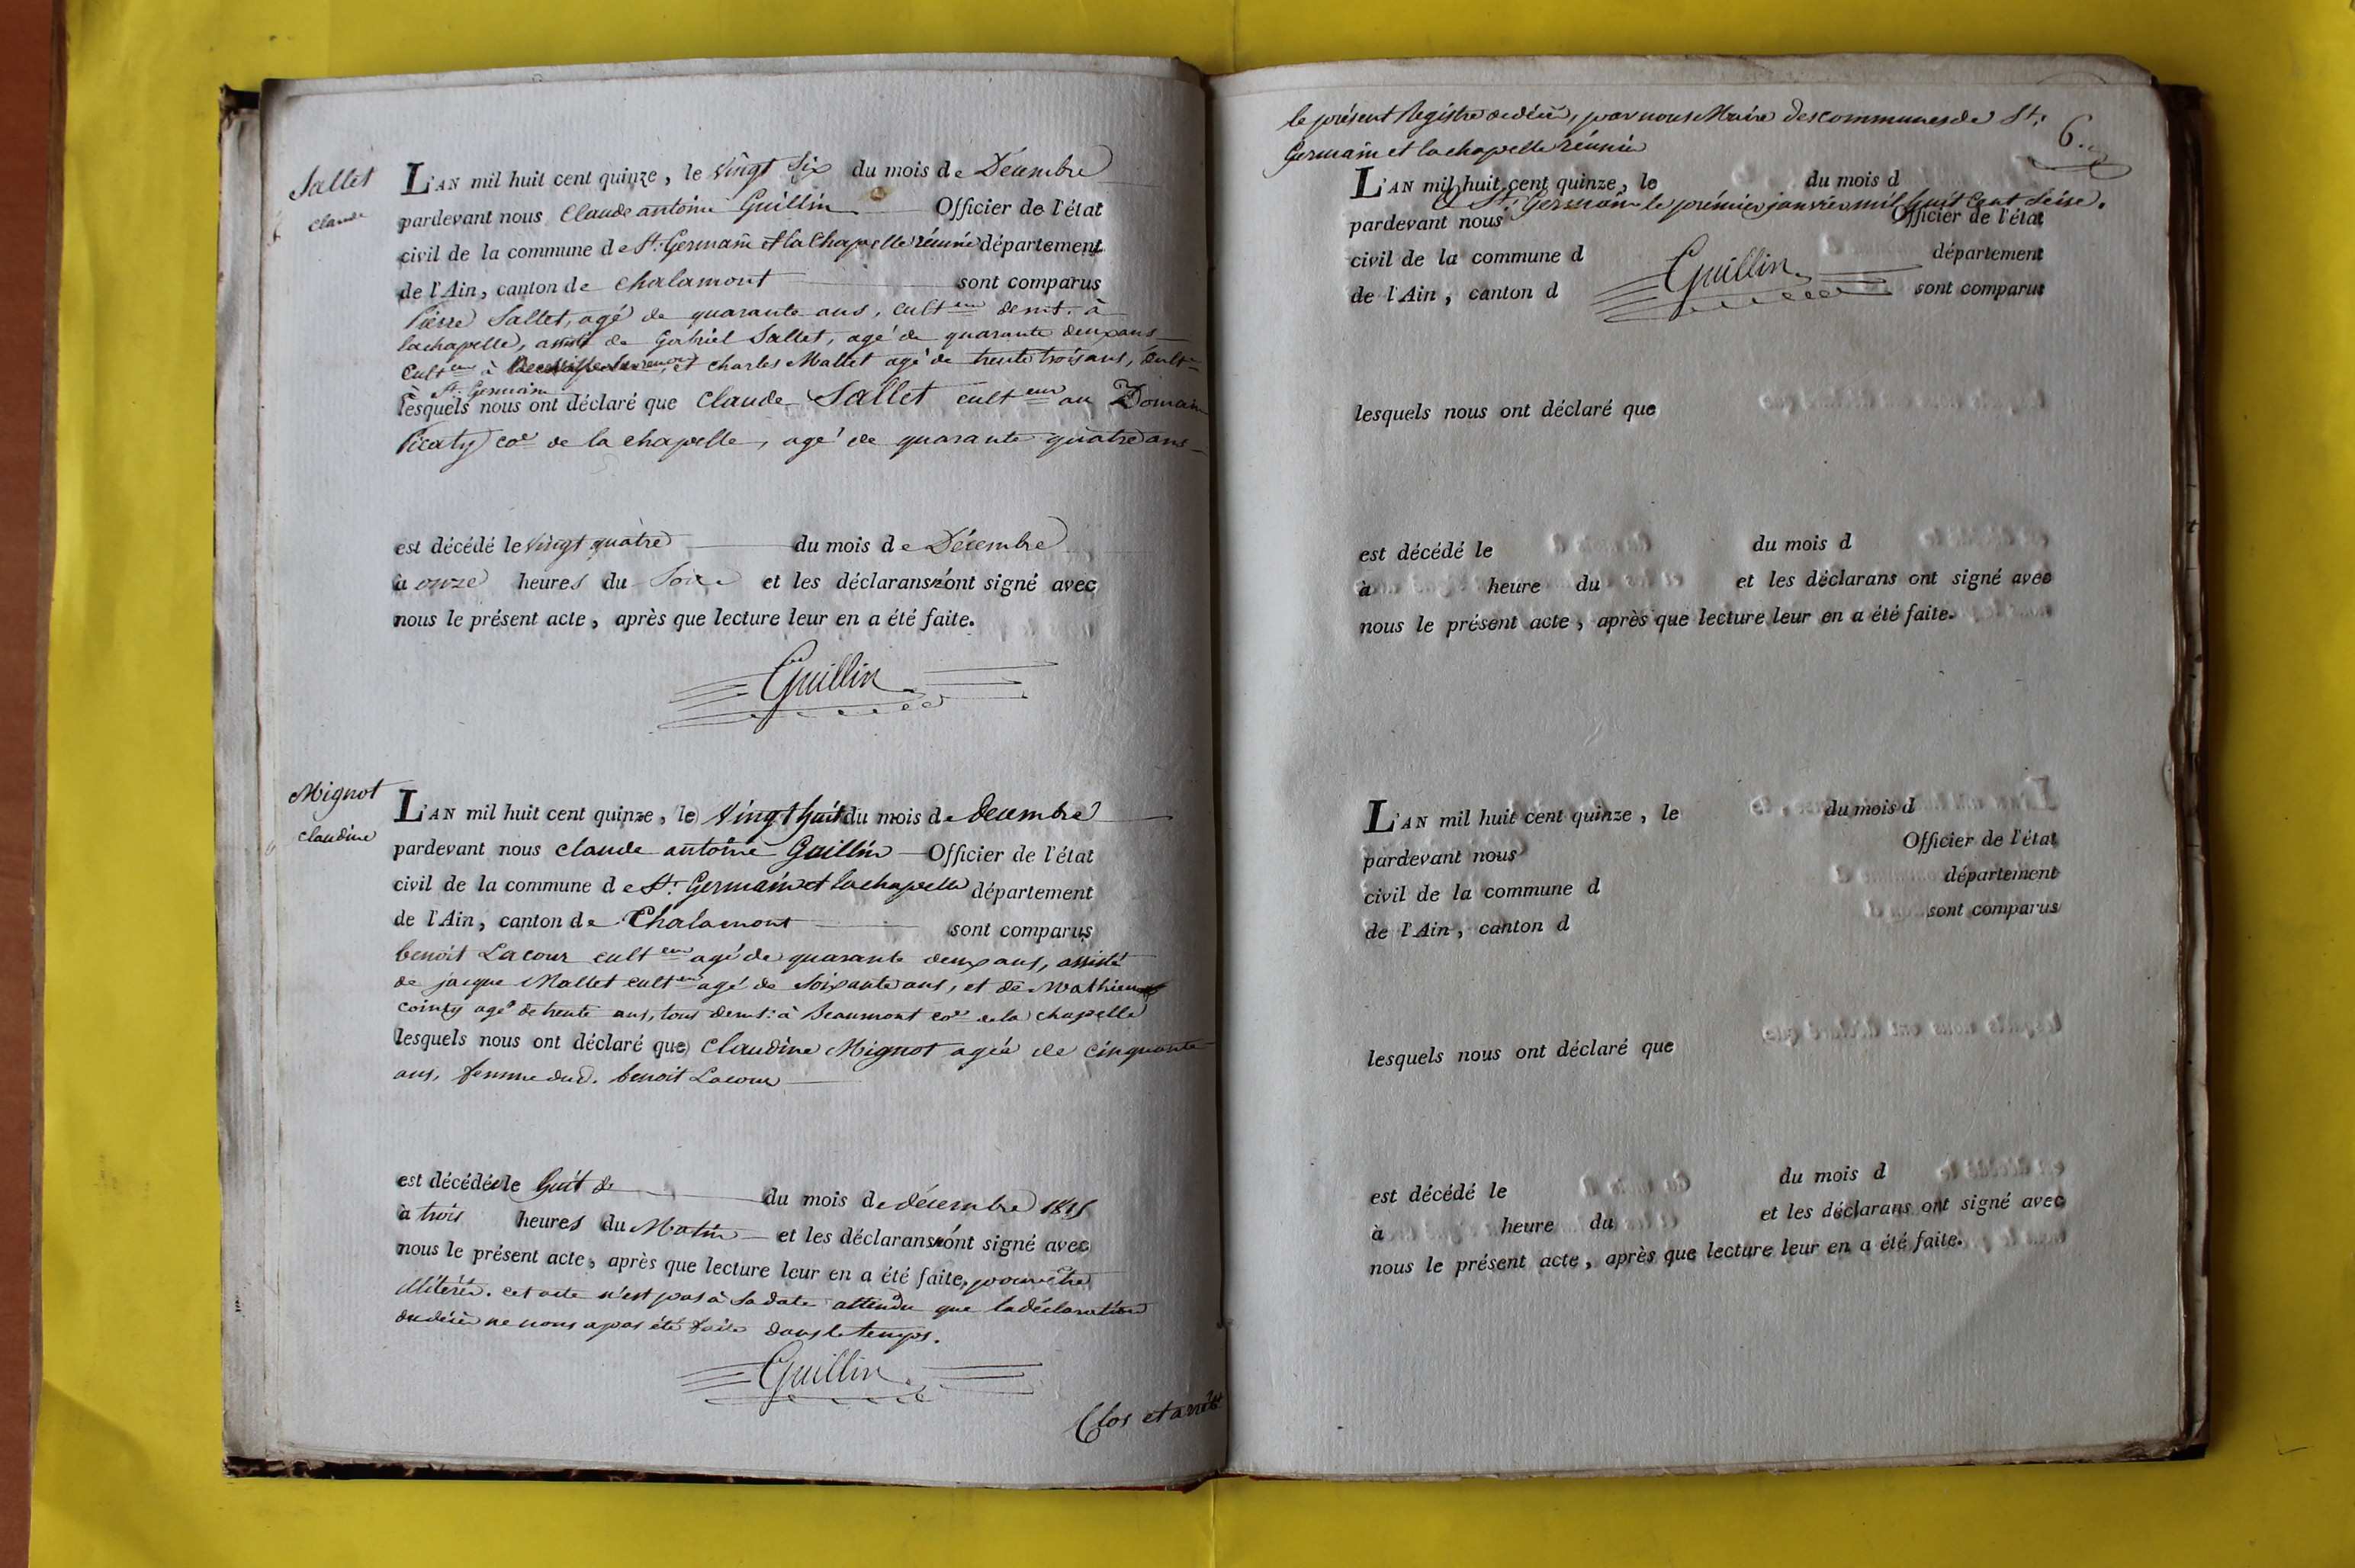 Sallet
Claude
L'AN mil huit cent quinze, le vingt Six du mois de Décembre
pardevant nous Claude antoine Guillin Officier de l'état
civil de la commune de St. Germain et la Chapelle réunie département
de l'Ain, canton de Chalamont sont comparus
Pierre Sallet, agé de quarante ans, cult.eur demt. à
lachapelle, assisté de Gabriel Sallet, agé de quarante deux ans
Cult.eur à et Charles Mallet agé de trente trois ans, Cult.
à St. Germain
lesquels nous ont déclaré que Claude Sallet cult.eur au Domaine
Picaty co.e de la chapelle, agé de quarante quatre ans
est décédé le vingt quatre du mois de Décembre
à onze heures du Soir et les déclarans n'ont signé avec
nous le présent acte, après que lecture leur en a été faite.
Guillin
Mignot
Claudine
L'AN mil huit cent quinze, le Vingt huit du mois de decembre
pardevant nous claude antoine Guillin Officier de l'état
civil de la commune de St. Germain et lachapelle département
de l'Ain, canton de Chalamont sont comparus
benoit Lacour cult.eur agé de quarante deux ans, assisté
de jacque Mallet cult.eur agé de Soixante ans, et de Mathieu
Cointy agé de trente ans, tous demt. à Beaumont co.e de la chapelle
lesquels nous ont déclaré que Claudine Mignot agée de cinquante
ans, femme dud. benoit Lacour
est décédée le huit de du mois de décembre 1815
à trois heures du Matin et les déclarans n'ont signé avec
nous le présent acte, après que lecture leur en a été faite, pour être
illitérés. cet acte n'est pas à sa date attendu que la déclaration
du décès ne nous a pas été faite dans le temps.
Guillin
Clos et arrêté
le présent Registre de décès, par nous Maire des communes de St.
Germain et la chapelle réunie
6.
L'AN mil huit cent quinze, le du mois d
à St. Germain le prémier janvier mil huit Cent Seise.
pardevant nous Officier de l'état
civil de la commune d département
Guillin
de l'Ain, canton d sont comparus
lesquels nous ont déclaré que
est décédé le du mois d
à heure du et les déclarans ont signé avec
nous le présent acte, après que lecture leur en a été faite.
L'AN mil huit cent quinze, le du mois d
pardevant nous Officier de l'état
civil de la commune d département
de l'Ain, canton d sont comparus
lesquels nous ont déclaré que
est décédé le du mois d
à heure du et les déclarans ont signé avec
nous le présent acte, après que lecture leur en a été faite.